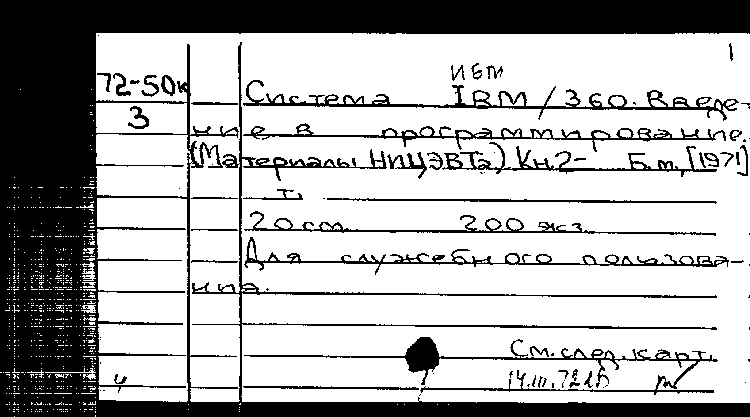 1
ИБМ
72-50к Система IBM/360. Введе-
3 ние в программирование.
(Материалы НИЦЭВТа) Кн.2- Б.м., [1971]
т.
20 см. 200 экз.
Для служебного пользова-
ния.
См. след. карт.
14.III.72
4